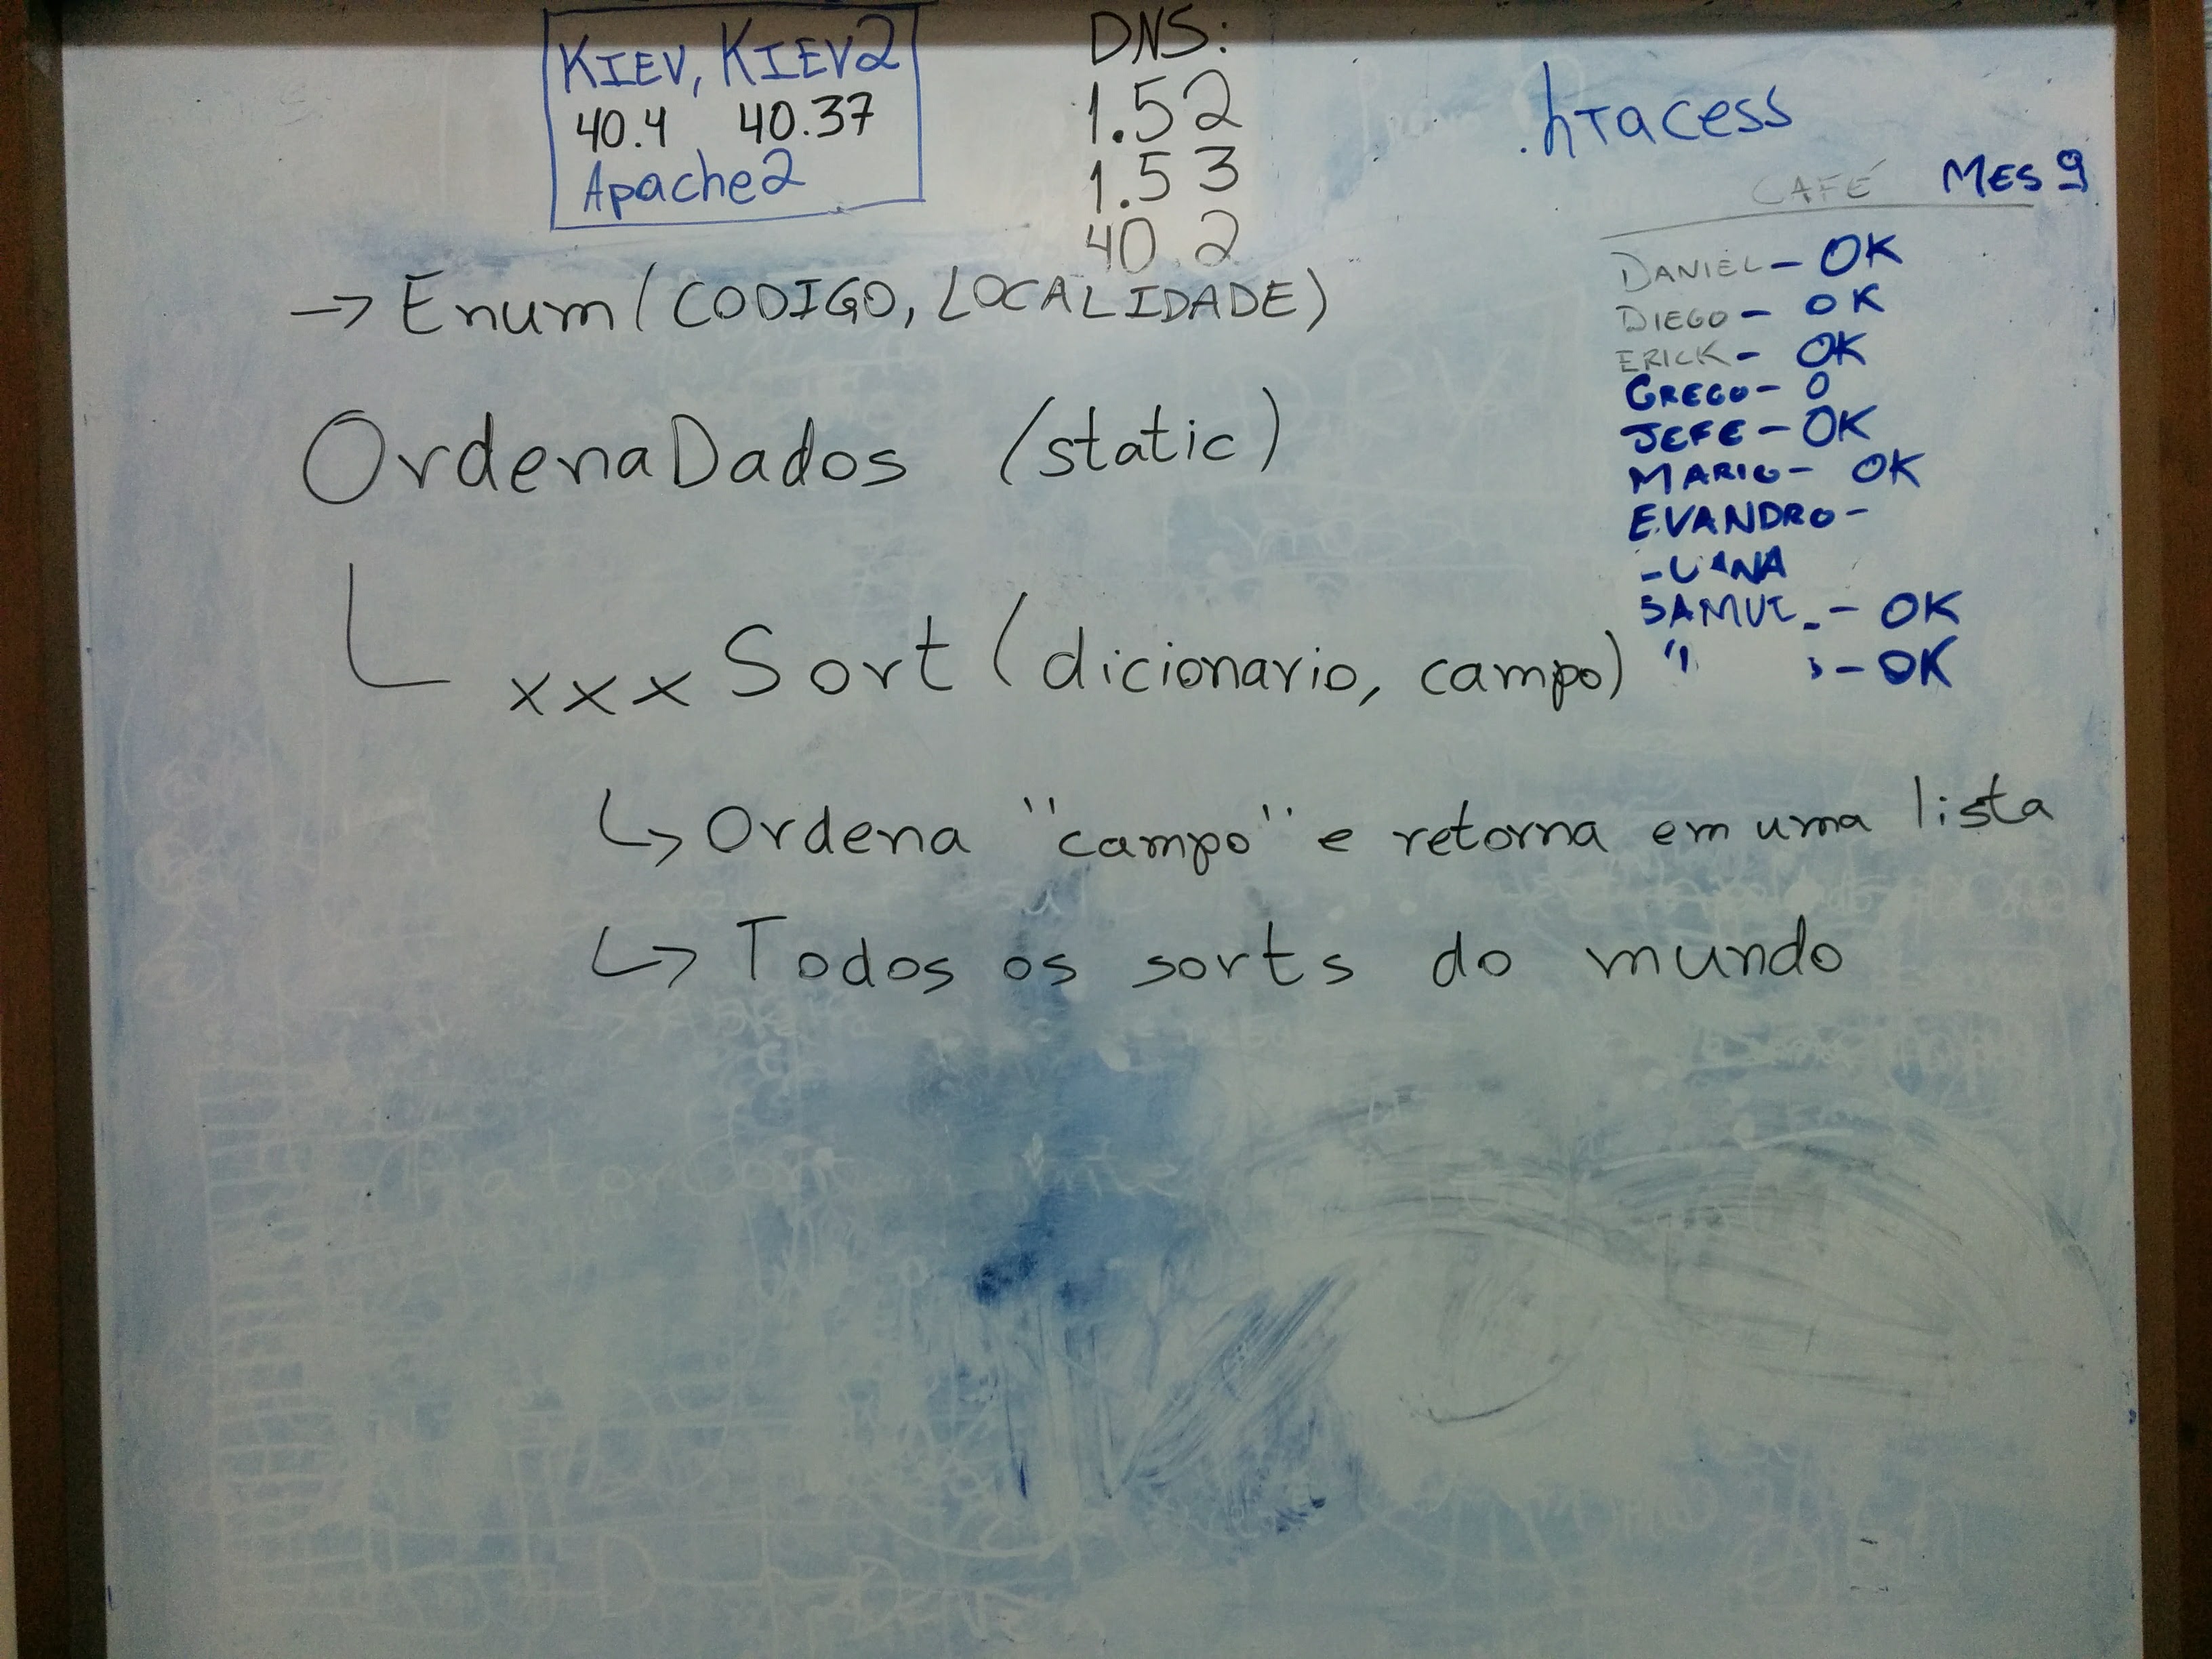 KIEV, KIEV2
40.4 40.37
Apache2
DNS:
1.52
1.53
40.2
.hTacess
CAFÉ MES 9
DANIEL - OK
DIEGO - OK
ERICK - OK
GREGO - O
JEFE - OK
MARIO - OK
EVANDRO -
SAMU - OK
" - OK
→ Enum (CODIGO, LOCALIDADE)
OrdenaDados (static)
xxxSort (dicionario, campo)
↳ Ordena "campo" e retorna em uma lista
↳ Todos os sorts do mundo